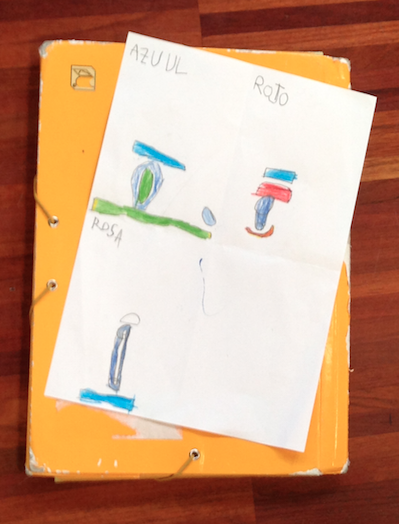 AZUUL
ROJO
ROSA